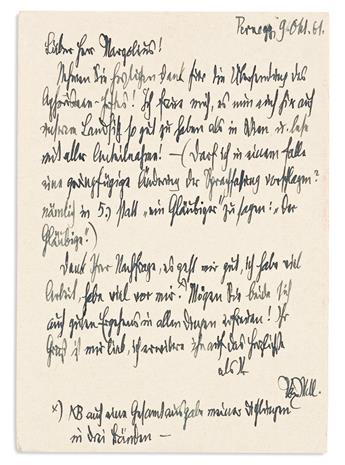 Pernegg, 9. Okt. 61.
Lieber Herr Margolius!
Nehmen Sie herzlichen Dank für die Übersendung des
Aphorismen-! Ich freue mich, es nun auch hier auf
unserem Landsitz so gut zu haben als in Wien u. lese
mit aller Anteilnahme! – (Darf ich in einem Falle
eine geringfügige Änderung der Sprachfassung vorschlagen?
nämlich in 5.) statt „ein Gläubiger" zu sagen: „der
Gläubige"!)
Dank Ihrer Nachfrage, es geht mir gut, ich habe viel
Arbeit, habe viel vor mir.ˣ Mögen Sie beide sich
auch guten Ergehens in allen Dingen erfreuen! Ihr
Gruß ist mir lieb, ich erwidere ihn auf das herzlichste
als Ihr
x) NB auch eine Gesamtausgabe meiner Dichtungen
in drei Bänden –